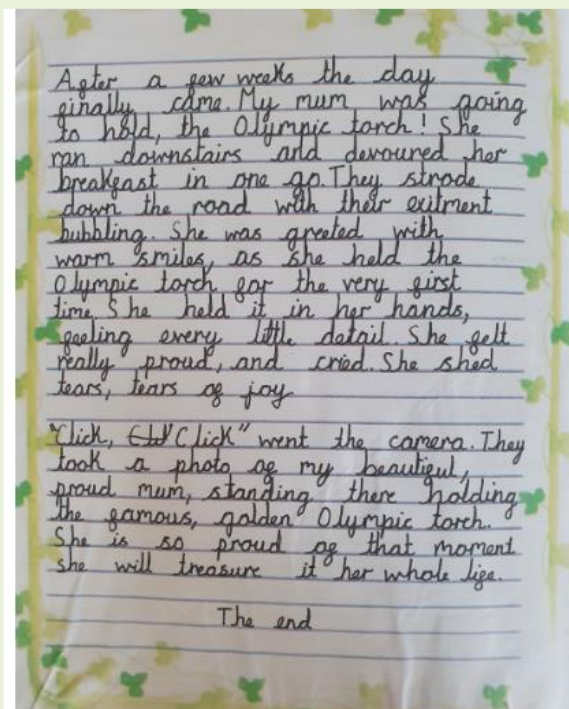 After a few weeks the day
finally came. My mum was going
to hold, the Olympic torch! She
ran downstairs and devoured her
breakfast in one go. They strode
down the road with their exitment
bubbling. She was greeted with
warm smiles, as she held the
Olympic torch for the very first
time. She held it in her hands,
feeling every little detail. She felt
really proud, and cried. She shed
tears, tears of joy.
"Click, Click" went the camera. They
took a photo of my beautiful,
proud mum, standing there holding
the famous, golden Olympic torch.
She is so proud of that moment
she will treasure it her whole life.
The end